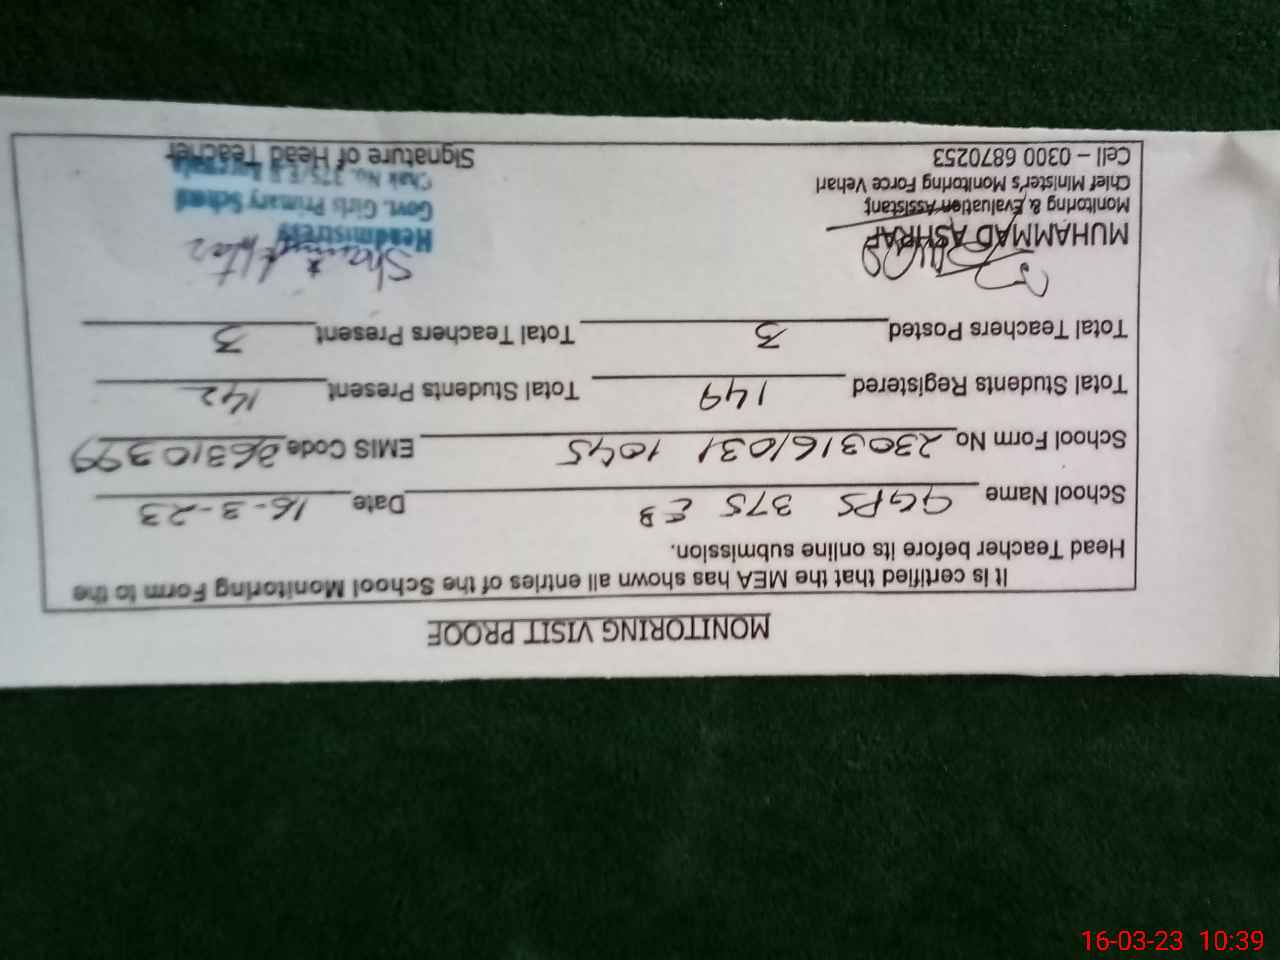 MONITORING VISIT PROOF
It is certified that the MEA has shown all entries of the School Monitoring Form to the
Head Teacher before its online submission.
School Name GGPS 375 EB Date 16-3-23
School Form No 2303161031 1045 EMIS Code 36310399
Total Students Registered 149 Total Students Present 142
Total Teachers Posted 3 Total Teachers Present 3
MUHAMMAD ASHRAF
Monitoring & Evaluation Assistant
Chief Minister's Monitoring Force Vehari
Cell – 0300 6870253
Headmistress
Govt. Girls Primary School
Chak No. 375/E.B
Signature of Head Teacher
16-03-23 10:39